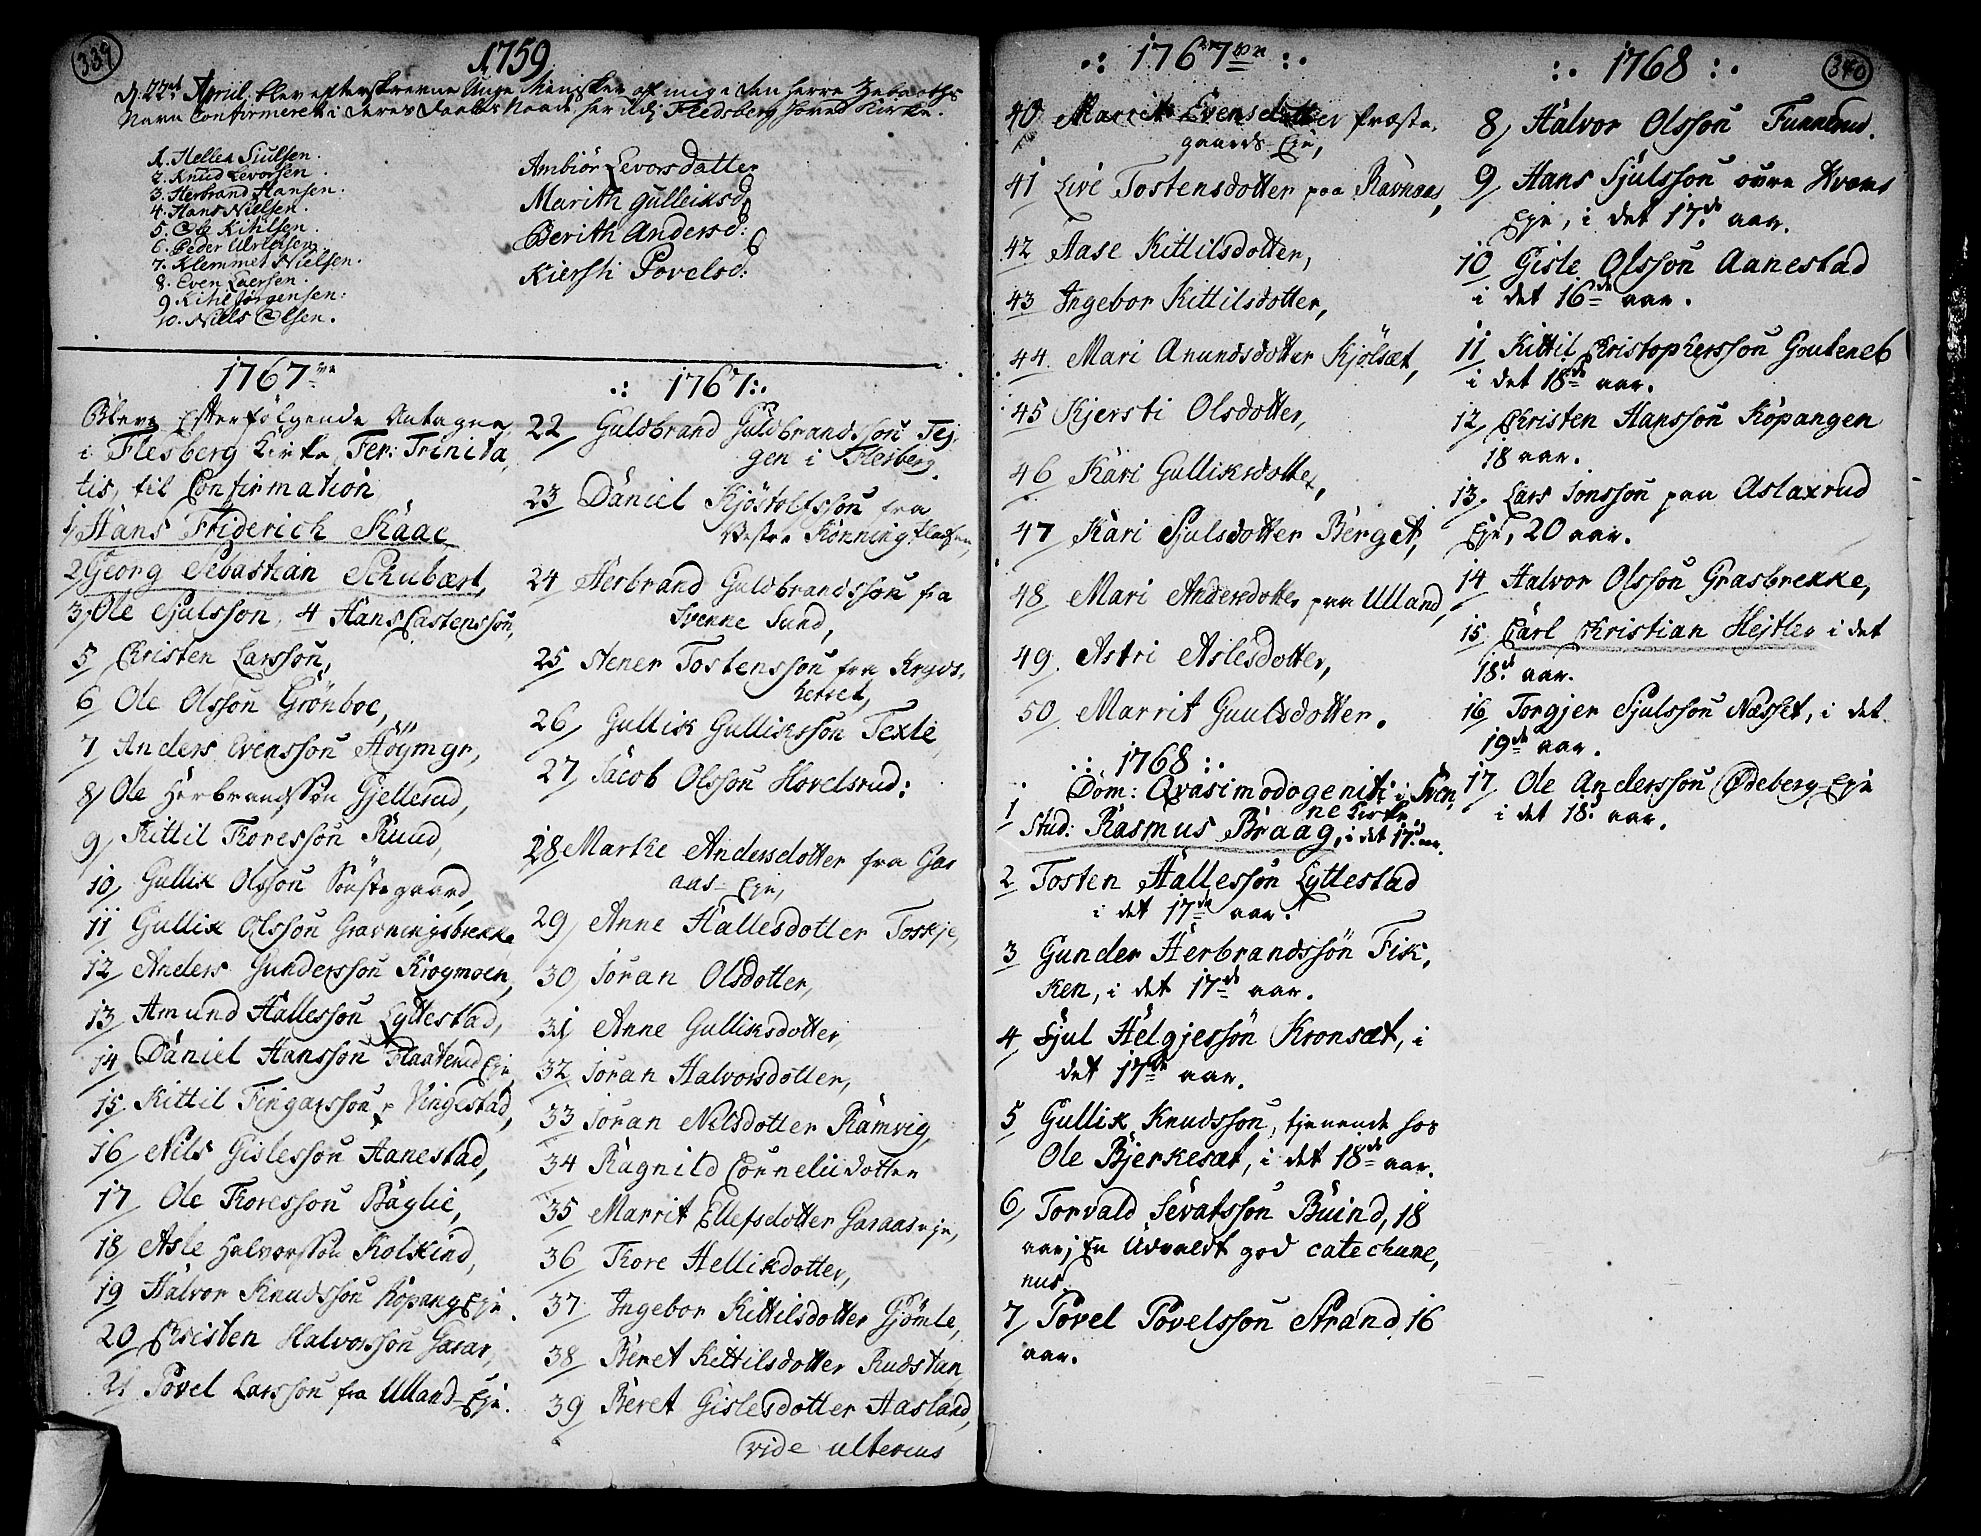 339
1759
d. 22nd April blev efterskrevne Unge Menisker af mig i den Herre Zebaoths
Navn Confirmeret i deres Daabs Naade her udj Fledsberg hoved Kirke.
1. Hellek Siulsen.
2. Knud Levorsen.
3. Herbrand Hansen.
4. Hans Nielsen.
5. Ole Kihlsen.
6. Peder
7. Klemmet Nielsen.
8. Even Laersen.
9. Kihl Jörgensen:
10. Niels Olsen.
Ambiör Levorsdatter
Marith Gulleiksd:
Berith Andersd:
Kiersti Povelsd:
1767
Bleve Efterfölgende Antagne
i Flesberg Kirke, Fer: Trinita,
tis, til Confirmation
1, Hans Friderich Kaae
2, Georg Sebastian Schubært,
3, Ole Sjulsson, 4 Hans Castensson,
5 Christen Larsson,
6 Ole Olsson Grönboe,
7 Anders Evensson Höymyr,
8, Ole Herbrandsson Gjellerud,
9, Kittil Thoresson Ruud,
10, Gullik Olsson Sönstegaard,
11 Gullik Olsson Gravningsbrekke
12, Anders Gundersson Krogmoen,
13, Amund Hallesson Lyttestad,
14 Daniel Hansson Flaaterud Eje,
15, Kittil Fingarsson Vingestad,
16, Nils Gislesson Aanestad,
17 Ole Thoresson Baglie,
18, Asle Halvorsson Kolkind,
19 Halvor Knudsson Köpang Eje.
20 Christen Halvorsson Garar,
21 Povel Larsson fra Ulland-Eje.
.: 1767 :.
22, Guldbrand Guldbrandsson Tej,
gen i Flesberg.
23 Daniel Kjöstolfsson fra
Vestre Könning
24 Herbrand Guldbrandsson fra
Svenne Sund,
25 Stener Tostensson fra
26, Gullik Gulliksson Texle
27, Jacob Olsson Hovelsrud:
28, Marthe Andersdotter fra Gar
aas-Eje,
29, Anne Hallesdotter Toskje,
30, Jöran Olsdotter,
31, Anne Gulliksdotter,
32, Jöran Halvorsdotter,
33 Jöran Nilsdotter Ramvig,
34 Ragnild Corneliidotter
35 Marrit Ellefsdotter Garaas eje,
36 Thore Hellikdotter,
37 Ingebor Kittilsdotter Gjömle,
38 Beret Kittilsdotter Rudstun
39 Beret Gislesdotter Aasland,
vide ulterius
.: 1767 :.
40 Marrit Evensdotter Præste,
gaards-Eje,
41 Live Tostensdotter paa Ravnaas,
42 Aase Kittilsdotter,
43 Ingebor Kittilsdotter,
44 Mari Anundsdotter Kjölsæt,
45 Kjersti Olsdotter,
46 Kari Gulliksdotter,
47 Kari Sjulsdotter Berget,
48 Mari Andersdotter paa Ulland,
49 Astri Aslesdotter,
50 Marrit Guulsdotter.
.: 1768 :.
Dom: Qvasimodogeniti i Sven,
ne Kirke.
1 Stud: Rasmus Braag, i det 17de aar.
2 Tosten Hallesson Lyttestad
i det 17de aar.
3 Gunder Herbrandssön Fik,
ken, i det 17de aar.
4 Sjul Helgjessön Kronsæt, i
det 17de aar.
5 Gullik Knudsson, tjenende hos
Ole Bjerkesæt, i det 18de aar.
6, Torvald Sevatsson Buind, 18
aar, En Udvaldt god catechume,
nus.
7, Povel Povelsson Strand, 16
aar.
340
:. 1768 :.
8, Halvor Olsson Tunnerud.
9, Hans Sjulsson övre Kvams
Eje, i det 17de aar.
10 Gisle Olsson Aanestad
i det 16de aar.
11 Kittil Christophersson
i det 18de aar.
12, Christen Hansson Köpangen
18 aar.
13. Lars Jonsson paa Aslaxrud
Eje, 20 aar.
14 Halvor Olsson Grasbrekke,
15 Carl Christian Hejtler i det
18de aar.
16 Torgjer Sjulsson Næsset, i det
19de aar.
17 Ole Andersson Ødeberg Eje
i det 18de aar.